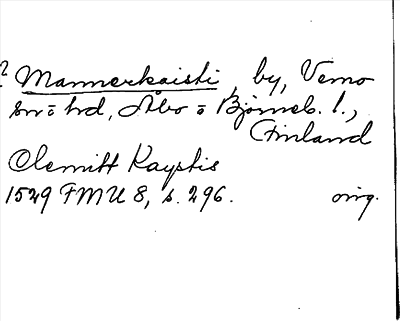 ? Mannerkaisti, by, Vemo
sn o hd, Åbo o Björneb. l.,
Finland
Clemitt Kaystis
1529 FMU 8, s. 296. orig.